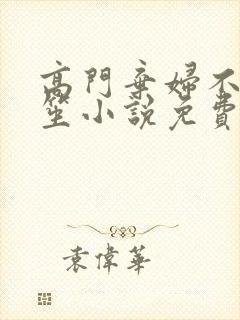 高門棄婦不
笙小說免費
袁偉華